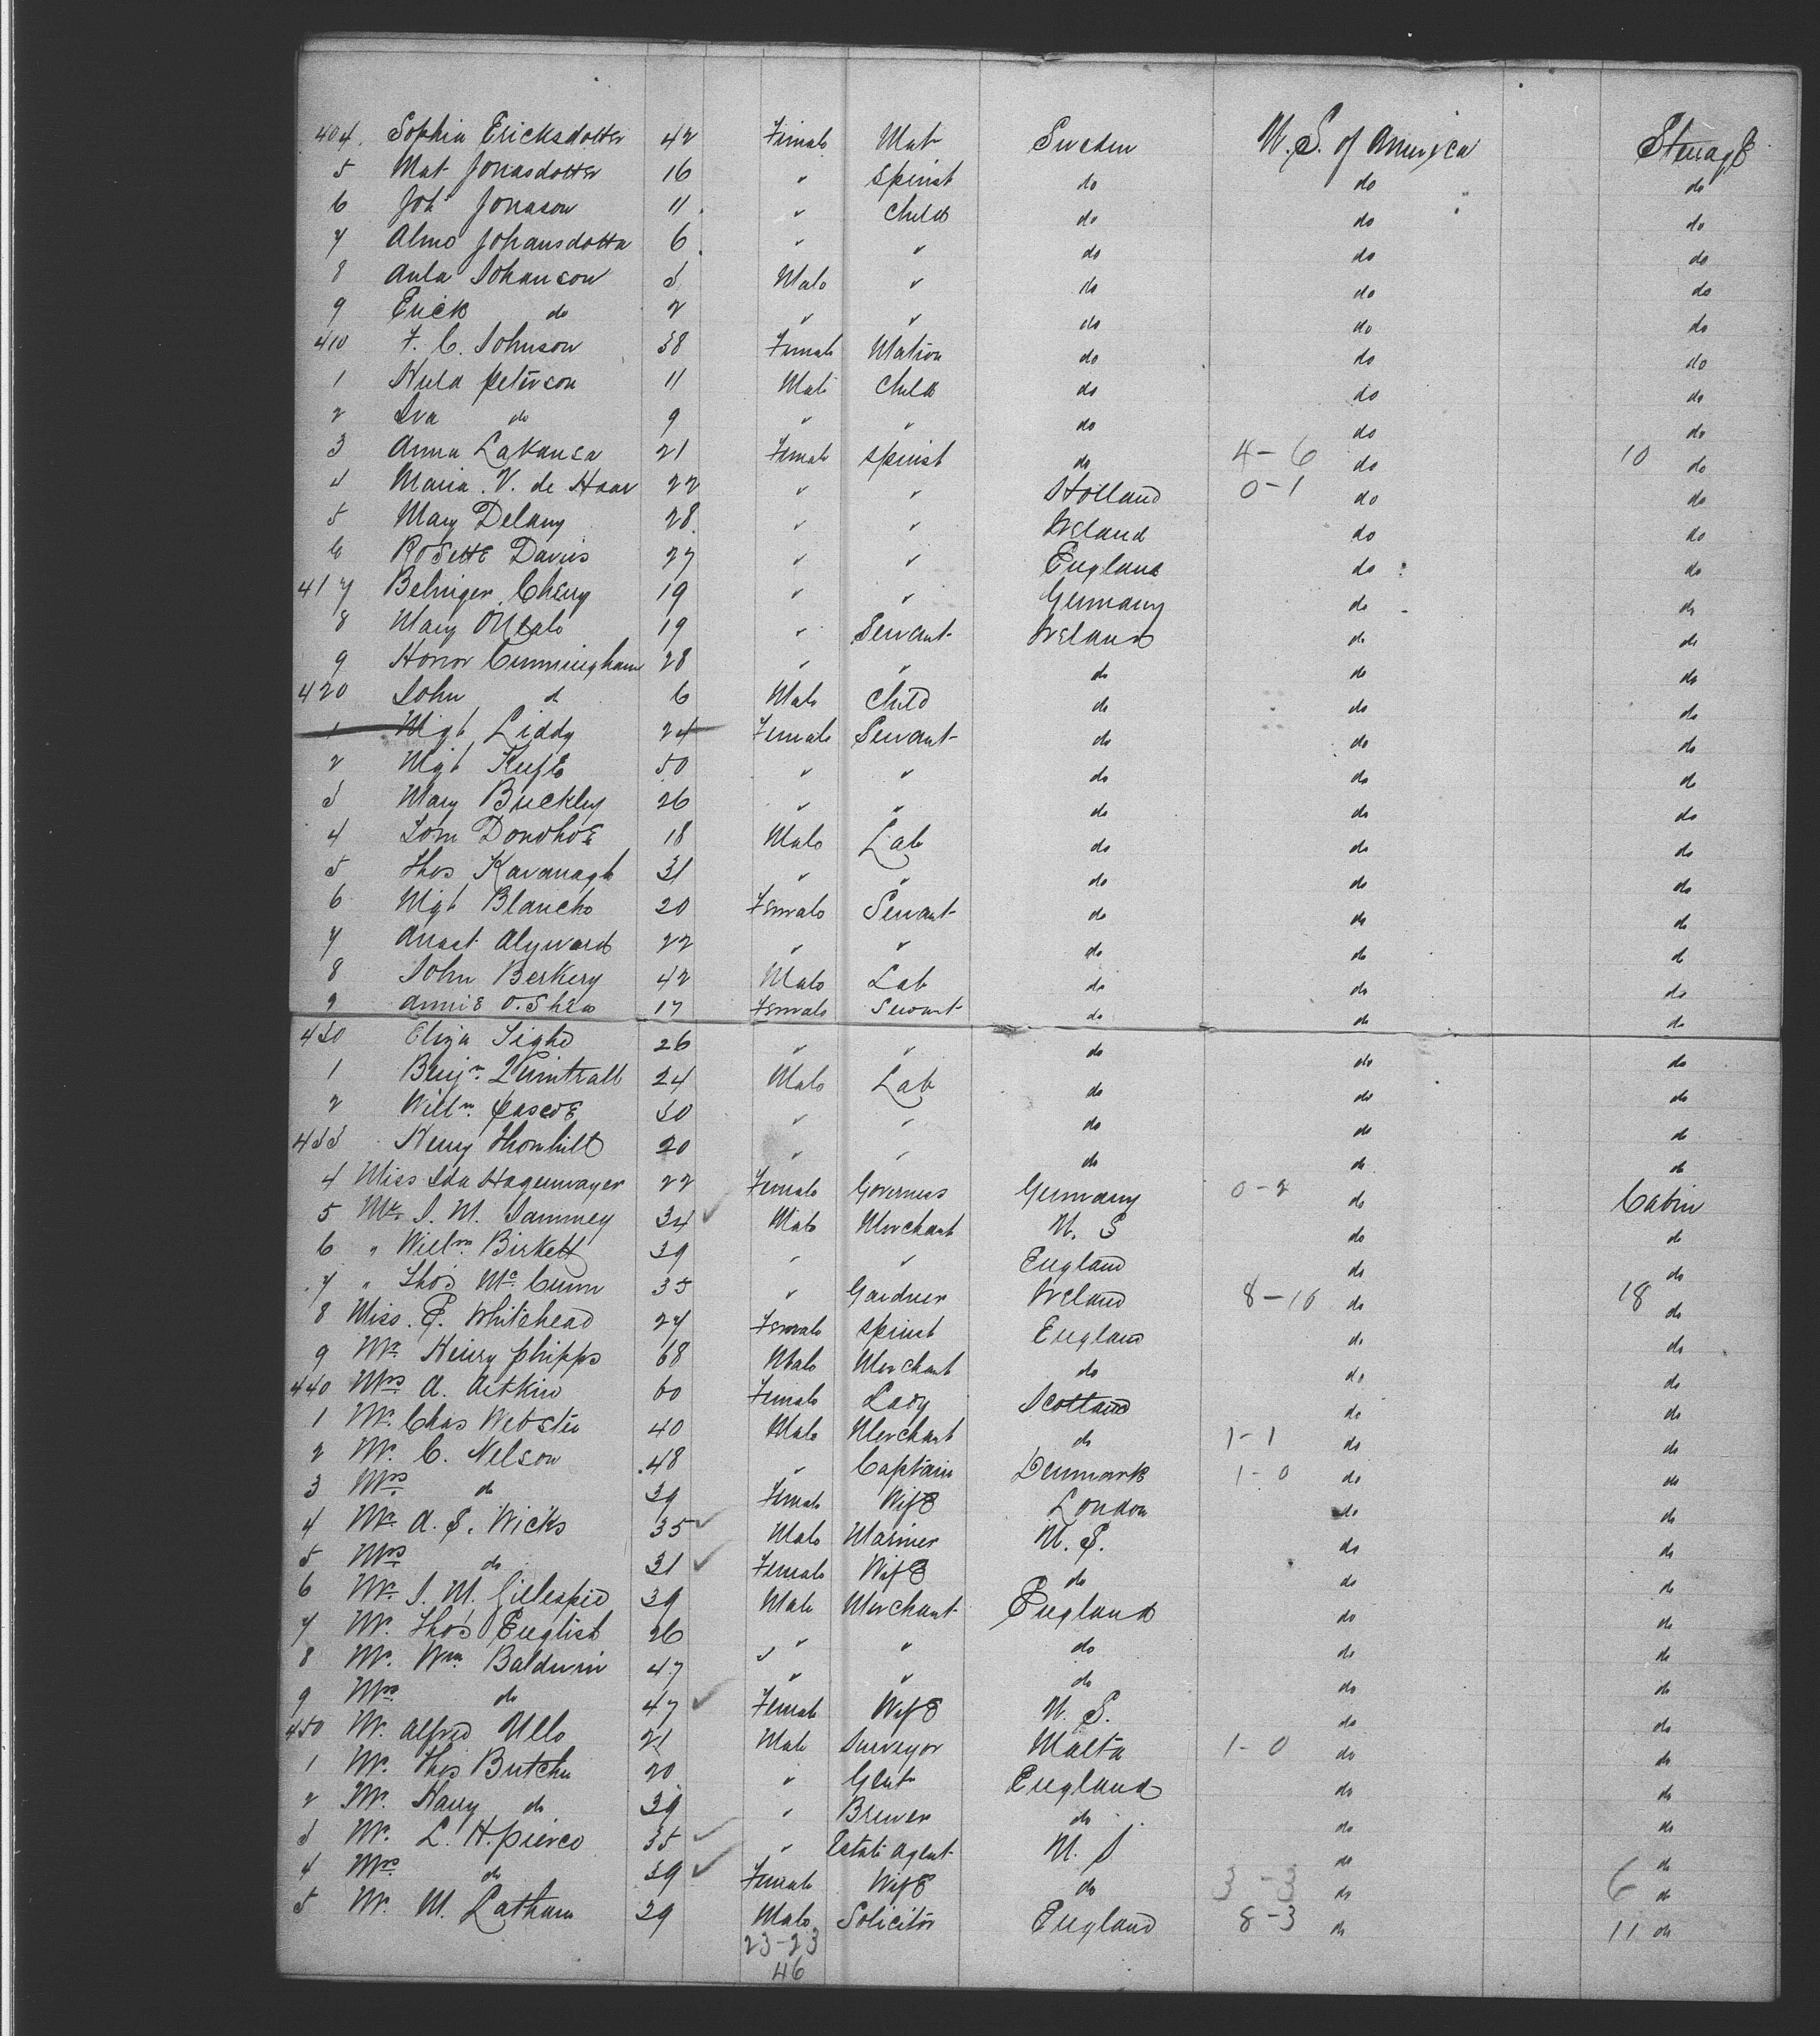 404. Sophia Ericksdotter 42 Female Mat Sweden U. S. of America Steerage
5 Mat Jonasdotter 16 " Spinst do do do
6 Joh Jonason 11 " Child do do do
7 Almo Johansdotta 6 " " do do do
8 Aula Johanson 3 Male " do do do
9 Erick do 2 " " do do do
410 F. C. Johnson 38 Female Matron do do do
1 Huld Peterson 11 Male Child do do do
2 Iva do 9 " " do do do
3 Anna Lakansa 21 Female Spinst do 4-6 do 10 do
4 Maria V. de Haar 22 " " Holland 0-1 do do
5 Mary Delany 28 " " Ireland do do
6 Rosette Davis 27 " " England do do
417 Belinger Cheny 19 " " Germany do do
8 Mary O'Neale 19 " Servant Ireland do do
9 Honor Cunningham 28 " " do do do
420 John do 6 Male Child do do do
1 Mgt Liddy 24 Female Servant do do do
2 Mgt Keefe 50 " " do do do
3 Mary Buckley 26 " " do do do
4 Tom Donohoe 18 Male Lab do do do
5 Thos Kavanagh 31 " " do do do
6 Mgt Blanche 20 Female Servant do do do
7 Anast Alyward 22 " " do do do
8 John Berkery 42 Male Lab do do do
9 Annie O.Shea 17 Female Servant do do do
430 Eliza Tighe 26 " " do do do
1 Benjn. 24 Male Lab do do do
2 Willm. Pascoe 30 " " do do do
433 Henry Thornhill 20 " " do do do
4 Miss Ida Hagenmayer 22 Female Governess Germany 0-2 do Cabin
5 Mr. J. M. Sammey 34 ✓ Male Merchant U. S do do
6 " Willm. Birkett 39 " " England do do
7 " Thos Mc. Cunn 35 " Gardner Ireland 8-10 do 18 do
8 Miss. E. Whitehead 27 Female Spinst England do do
9 Mr. Henry Phipps 68 Male Merchant do do do
440 Mrs A. Aitkin 60 Female Lady Scotland do do
1 Mr. Chas Webster 40 Male Merchant do 1-1 do do
2 Mr. C. Nelson 48 " Captain Denmark 1-0 do do
3 Mrs do 39 Female Wife London do do
4 Mr. A. S. Wicks 35 ✓ Male Mariner U. S. do do
5 Mrs do 31 ✓ Female Wife do do do
6 Mr. J. M. Gillespie 39 Male Merchant England do do
7 Mr. Thos English 26 " " do do do
8 Mr. Wm. Baldwin 47 " " do do do
9 Mrs do 47 ✓ Female Wife U. S. do do
450 Mr. Alfred Ullo 21 Male Surveyor Malta 1-0 do do
1 Mr. Thos Butcher 20 " Gent England do do
2 Mr. Harry do 39 " Brewer do do do
3 Mr. L. H. Pierce 35 ✓ " Estate Agent U. S do do
4 Mrs do 39 ✓ Female Wife do 3-3 do 6 do
5 Mr. M. Latham 29 Male Solicitor England 8-3 do 11 do
23-23
46